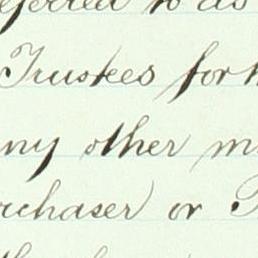 eferred to as
Trustees for
ny other m
rchaser or